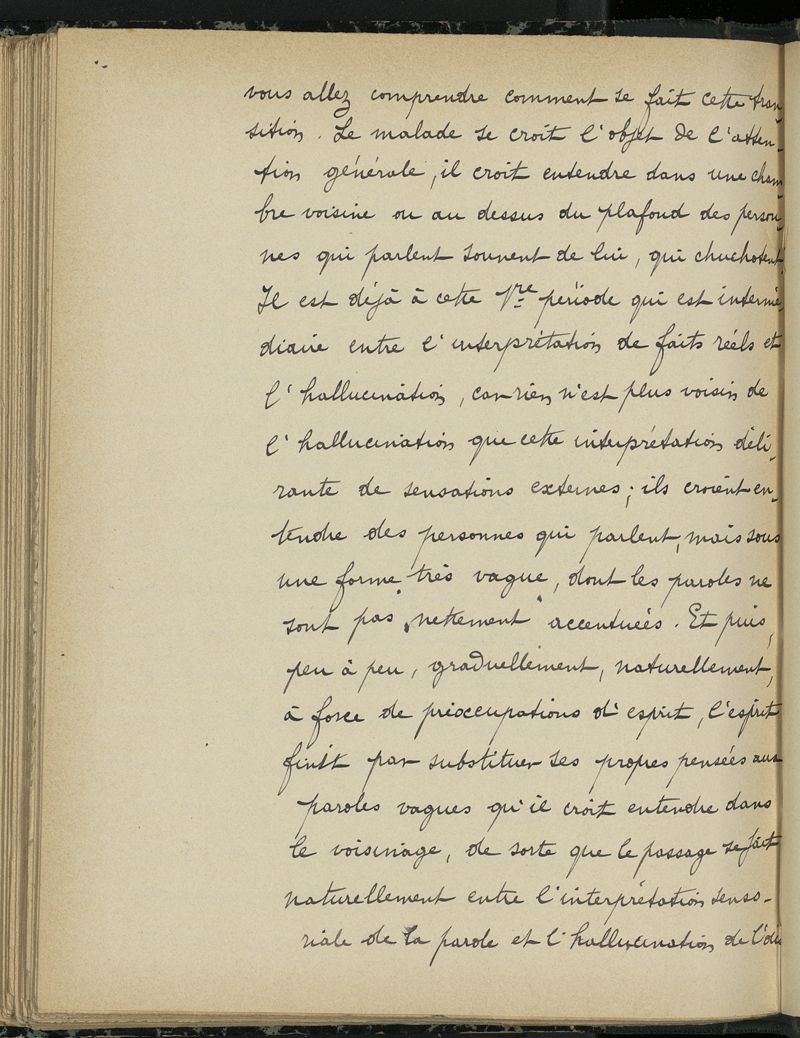 vous allez comprendre comment se fait cette tran
sition. Le malade se croit l'objet de l'atten-
tion générale, il croit entendre dans une cham
bre voisine ou au dessus du plafond des person
nes qui parlent souvent de lui, qui chuchotent.
Il est déjà à cette 1re période qui est intermé
diaire entre l'interprétation de faits réels et
l'hallucination, car rien n'est plus voisin de
l'hallucination que cette interprétation déli-
rante de sensations externes; ils croient en-
tendre des personnes qui parlent, mais sous
une forme très vague, dont les paroles ne
sont pas "nettement" accentuées. Et puis,
peu à peu, graduellement, naturellement,
à force de préoccupations d'esprit, l'esprit
finit par substituer ses propres pensées aux
paroles vagues qu'il croit entendre dans
le voisinage, de sorte que le passage se fait
naturellement entre l'interprétation senso-
riale de la parole et l'hallucination de l'ouï